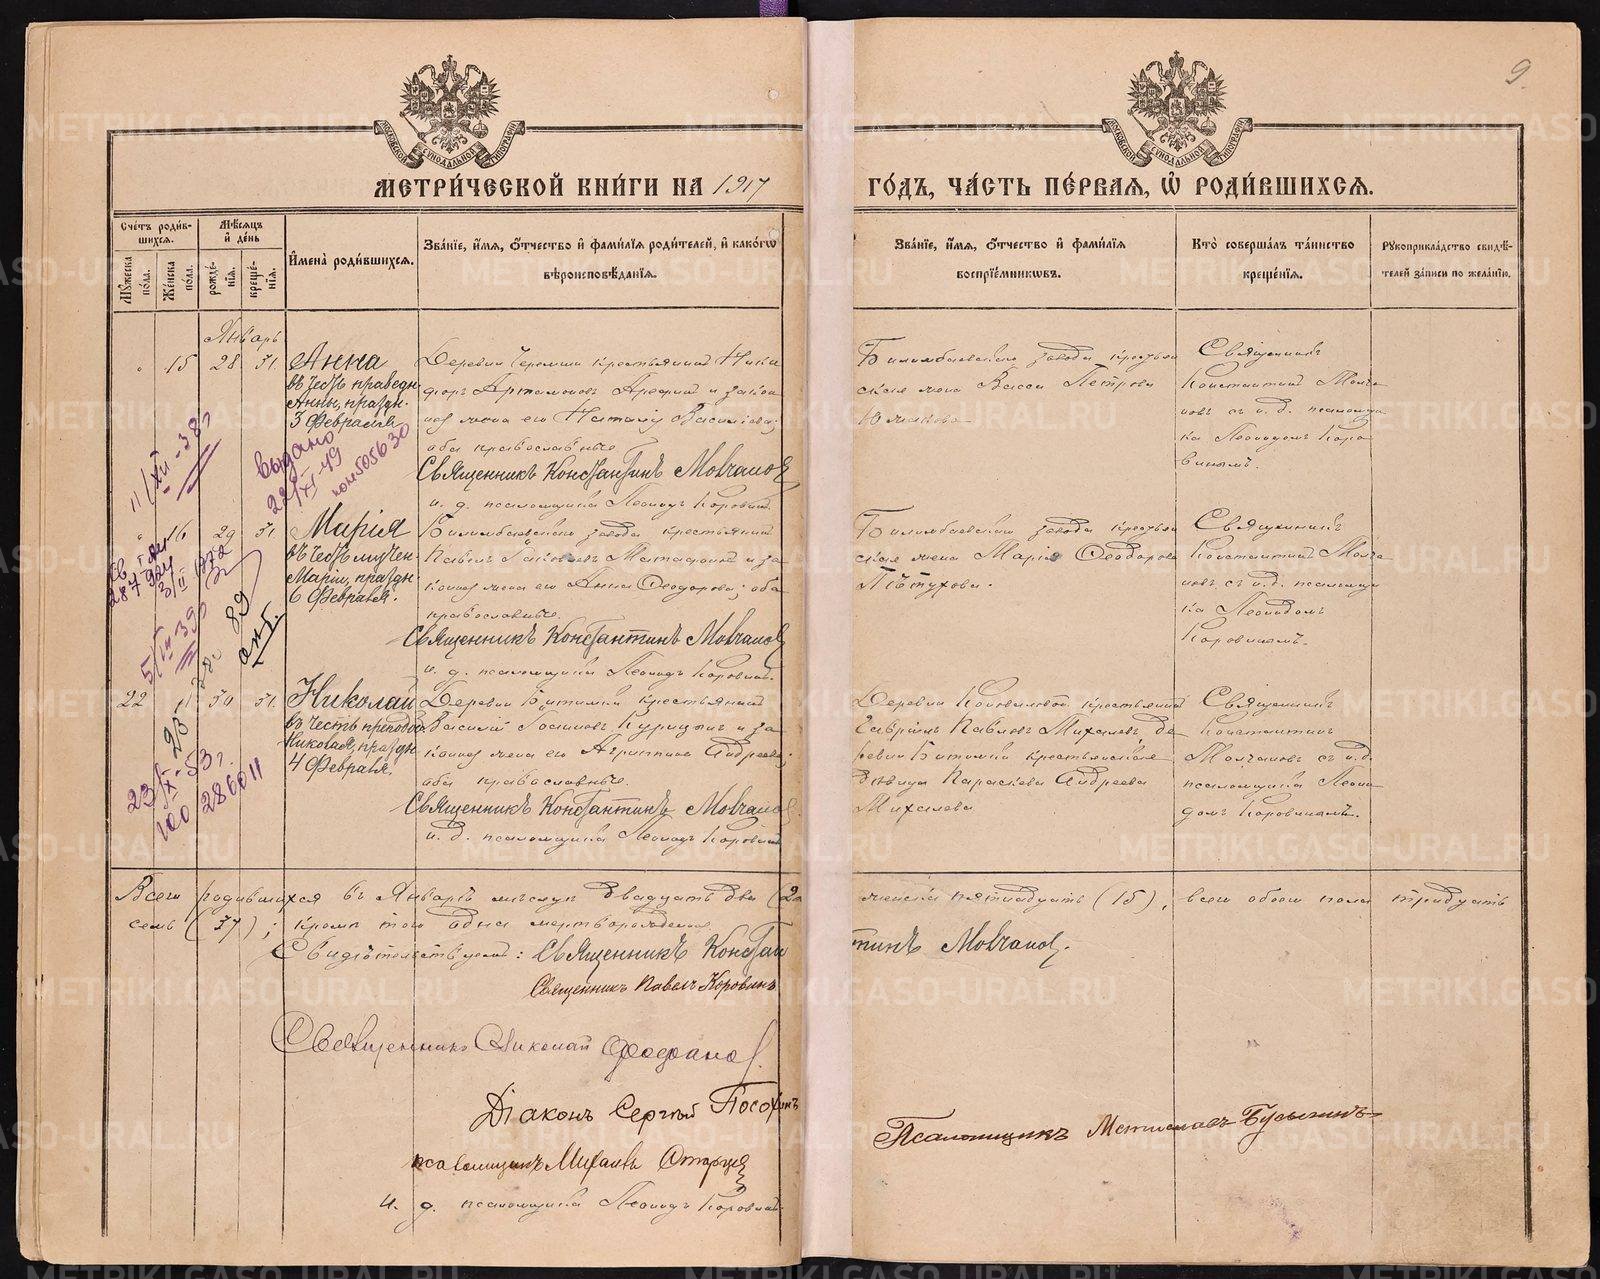 9
МОСКОВСКОЙ СѴНОДАЛЬНОЙ ТИПОГРАФІИ
МОСКОВСКОЙ СѴНОДАЛЬНОЙ ТИПОГРАФІИ
МЕТРИ́ЧЕСКОЙ КНИ́ГИ НА 1917
ГО́ДЪ, ЧА́СТЬ ПЕ́РВАЯ, Ѽ РОДИ́ВШИХСЯ.
Сче́тъ роди́в-
шихся.
Мѣ́сяцъ
и҆ де́нь
Му́жеска по́ла.
Же́нска по́ла.
рожде́-
нїя.
креще́-
нїя.
И҆мена̀ роди́вшихся.
Зва́нїе, и҆́мя, ѻ҆́тчество и҆ фами́лїя роди́телей, и҆ како́гѡ
вѣроисповѣ́данїя.
Зва́нїе, и҆́мя, ѻ҆́тчество и҆ фами́лїя
воспрїе́мниковъ.
Кто̀ соверша́лъ та́инство
креще́нїя.
Рукоприкла́дство свидѣ́-
телей за́писи по жела́нїю.
Январь
15 28 31.
Анна
въ честь праведн.
Анны, праздн.
3 Февраля
Деревни Черемши крестьянинъ Ники
форъ Артамоновъ Арефинъ и закон
ная жена его Наталія Васильева;
оба православные
Священникъ Константинъ Молчанов
и. д. псаломщика Леонидъ Коровинъ
Билимбаевскаго завода крестьян
ская жена Васса Петрова
Юлакова
Священникъ
Константинъ Молча
новъ съ и. д. псаломщи
ка Леонидомъ Коро
винымъ.
11/XII-38г
выдано
22/XI-49
16 29 31
Марія
въ честь мучен.
Маріи, праздн
6 Февраля.
Билимбаевскаго завода крестьянинъ
Павелъ Яковлевъ и за
конная жена его Анна Ѳеодорова; оба
православные.
Священникъ Константинъ Молчанов
и. д. псаломщика Леонидъ Коровинъ.
Билимбаевскаго завода крестьян
ская жена Марія Ѳеодорова
Пѣтухова.
Священникъ
Константинъ Молча
новъ съ и. д. псаломщи
ка Леонидомъ
Коровинымъ.
22 30 31.
Николай
въ честь преподоб
Николая, праздн
4 Февраля.
Деревни Битимки крестьянинъ
Василій Курицынъ и за
конная жена его Агриппина Андреева;
оба православные.
Священникъ Константинъ Молчанов
и. д. псаломщика Леонидъ Коровинъ
Деревни Коноваловой крестьянинъ
Гавріилъ Павловъ Михалевъ, де
ревни Битимки крестьянская
дѣвица Параскева Андреева
Михалева
Священникъ
Константинъ
Молчановъ съ и. д.
псаломщика Леони
домъ Коровинымъ.
23/X-53г.
286011
Всего родившихся въ Январѣ мѣсяцѣ двадцать два (22
женска пятнадцать (15), всего обоего пола тридцать
семь (37); кромѣ того одна мертворожденная
Свидѣтельствуемъ: Священникъ Констан
тинъ Молчанов.
Священникъ Павелъ Коровинъ
Священникъ Николай
Діаконъ Сергій Посохинъ
Псаломщикъ Мстиславъ
псаломщикъ Михаилъ Старцев
и. д. псаломщика Леонидъ Коровинъ